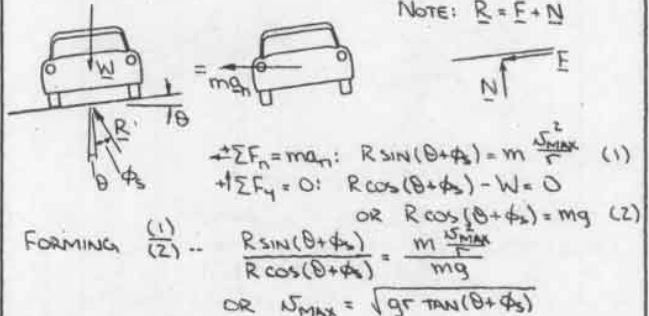 NOTE: R = F + N
W
=
man
F
N
θ
R
θ
φs
+← ΣFn = man: R SIN(θ+φs) = m vMAX²/r (1)
+↑ ΣFy = 0: R cos(θ+φs) - W = 0
OR R cos(θ+φs) = mg (2)
FORMING (1)/(2) .. R SIN(θ+φs)/R cos(θ+φs) = m vMAX²/r / mg
OR vMAX = √gr TAN(θ+φs)